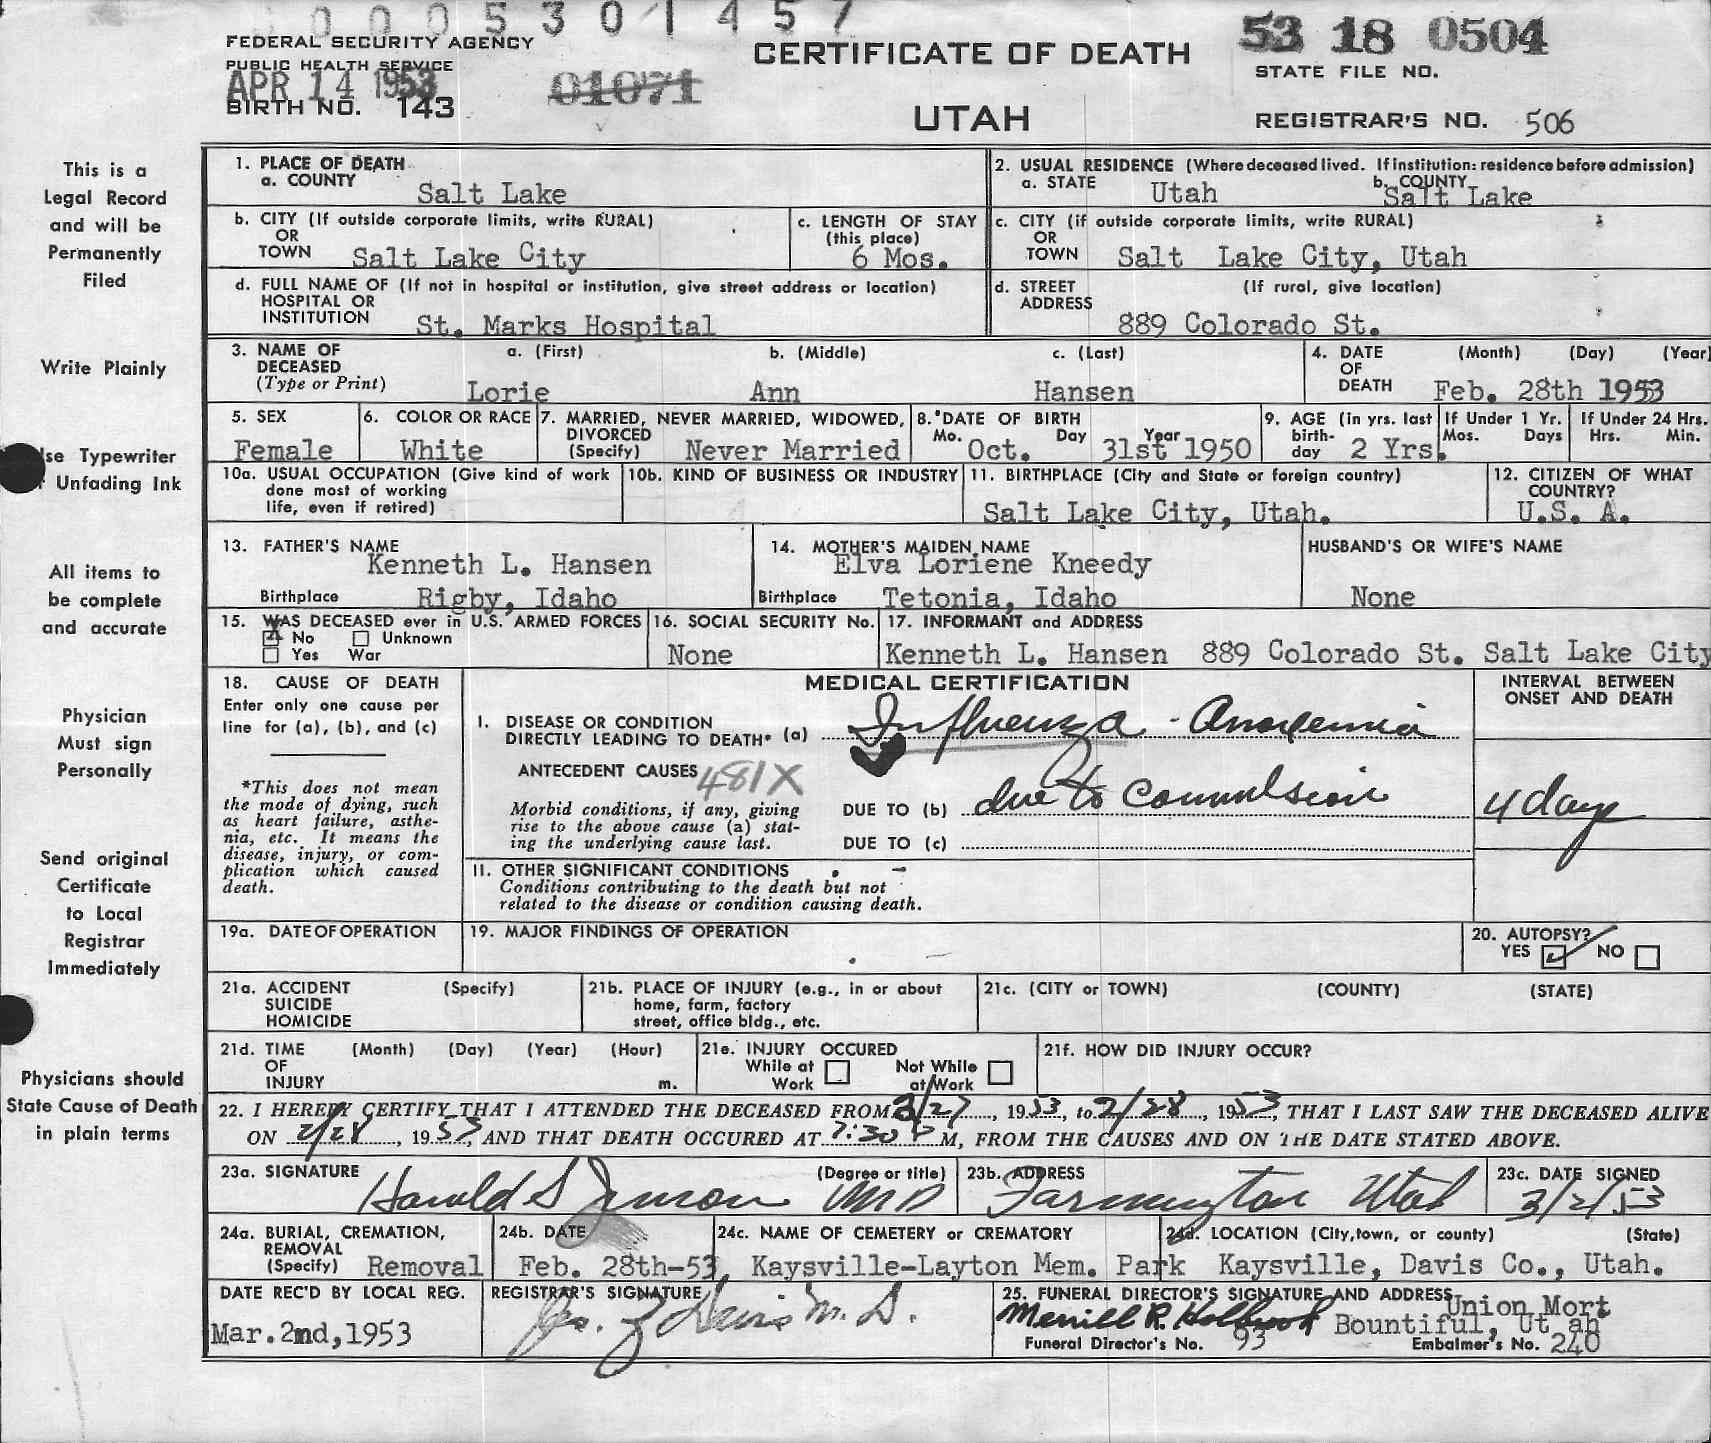 00005301457
FEDERAL SECURITY AGENCY
PUBLIC HEALTH SERVICE
APR 14 1953
BIRTH NO. 143
01071
CERTIFICATE OF DEATH
UTAH
53 18 0504
STATE FILE NO.
REGISTRAR'S NO. 506
This is a
Legal Record
and will be
Permanently
Filed
Write Plainly
Use Typewriter
Unfading Ink
All items to
be complete
and accurate
Physician
Must sign
Personally
Send original
Certificate
to Local
Registrar
Immediately
Physicians should
State Cause of Death
in plain terms
1. PLACE OF DEATH
a. COUNTY Salt Lake
2. USUAL RESIDENCE (Where deceased lived. If institution: residence before admission)
a. STATE Utah b. COUNTY Salt Lake
b. CITY (If outside corporate limits, write RURAL)
OR
TOWN Salt Lake City
c. LENGTH OF STAY
(this place)
6 Mos.
c. CITY (if outside corporate limits, write RURAL)
OR
TOWN Salt Lake City, Utah
d. FULL NAME OF (If not in hospital or institution, give street address or location)
HOSPITAL OR
INSTITUTION St. Marks Hospital
d. STREET (If rural, give location)
ADDRESS
889 Colorado St.
3. NAME OF a. (First) b. (Middle) c. (Last)
DECEASED
(Type or Print) Lorie Ann Hansen
4. DATE (Month) (Day) (Year)
OF
DEATH Feb. 28th 1953
5. SEX
Female
6. COLOR OR RACE
White
7. MARRIED, NEVER MARRIED, WIDOWED,
DIVORCED
(Specify) Never Married
8. DATE OF BIRTH
Mo. Day Year
Oct. 31st 1950
9. AGE (in yrs. last
birth-
day 2 Yrs.
If Under 1 Yr.
Mos. Days
If Under 24 Hrs.
Hrs. Min.
10a. USUAL OCCUPATION (Give kind of work
done most of working
life, even if retired)
10b. KIND OF BUSINESS OR INDUSTRY
11. BIRTHPLACE (City and State or foreign country)
Salt Lake City, Utah.
12. CITIZEN OF WHAT
COUNTRY?
U.S. A.
13. FATHER'S NAME
Kenneth L. Hansen
Birthplace Rigby, Idaho
14. MOTHER'S MAIDEN NAME
Elva Loriene Kneedy
Birthplace Tetonia, Idaho
HUSBAND'S OR WIFE'S NAME
None
15. WAS DECEASED ever in U.S. ARMED FORCES
No Unknown
Yes War
16. SOCIAL SECURITY No.
None
17. INFORMANT and ADDRESS
Kenneth L. Hansen 889 Colorado St. Salt Lake City
18. CAUSE OF DEATH
Enter only one cause per
line for (a), (b), and (c)
*This does not mean
the mode of dying, such
as heart failure, asthe-
nia, etc. It means the
disease, injury, or com-
plication which caused
death.
MEDICAL CERTIFICATION
INTERVAL BETWEEN
ONSET AND DEATH
I. DISEASE OR CONDITION
DIRECTLY LEADING TO DEATH* (a) Influenza -
ANTECEDENT CAUSES 481X
Morbid conditions, if any, giving
rise to the above cause (a) stat-
ing the underlying cause last.
DUE TO (b) due to Convulsion 4 days
DUE TO (c)
II. OTHER SIGNIFICANT CONDITIONS
Conditions contributing to the death but not
related to the disease or condition causing death.
19a. DATE OF OPERATION
19. MAJOR FINDINGS OF OPERATION
20. AUTOPSY?
YES NO
21a. ACCIDENT (Specify)
SUICIDE
HOMICIDE
21b. PLACE OF INJURY (e.g., in or about
home, farm, factory
street, office bldg., etc.
21c. (CITY or TOWN) (COUNTY) (STATE)
21d. TIME (Month) (Day) (Year) (Hour)
OF
INJURY m.
21e. INJURY OCCURED
While at Not While
Work at Work
21f. HOW DID INJURY OCCUR?
22. I HEREBY CERTIFY THAT I ATTENDED THE DECEASED FROM 2/27, 1953, to 2/28, 1953, THAT I LAST SAW THE DECEASED ALIVE
ON 2/28, 1953, AND THAT DEATH OCCURED AT 7:30 P M, FROM THE CAUSES AND ON THE DATE STATED ABOVE.
23a. SIGNATURE (Degree or title)
Harold S MD
23b. ADDRESS
Farmington Utah
23c. DATE SIGNED
3/2/53
24a. BURIAL, CREMATION,
REMOVAL
(Specify) Removal
24b. DATE
Feb. 28th-53,
24c. NAME OF CEMETERY OR CREMATORY
Kaysville-Layton Mem. Park
24d. LOCATION (City, town, or county) (State)
Kaysville, Davis Co., Utah.
DATE REC'D BY LOCAL REG.
Mar.2nd,1953
REGISTRAR'S SIGNATURE
M. D.
25. FUNERAL DIRECTOR'S SIGNATURE AND ADDRESS
Merrill R. Holbrook Union Mort
Bountiful, Utah
Funeral Director's No. 93 Embalmer's No. 240